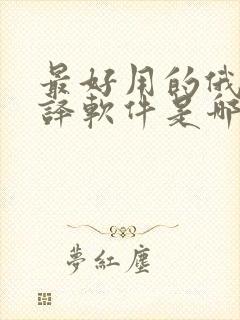 最好用的俄
譯軟件是哪
夢紅塵